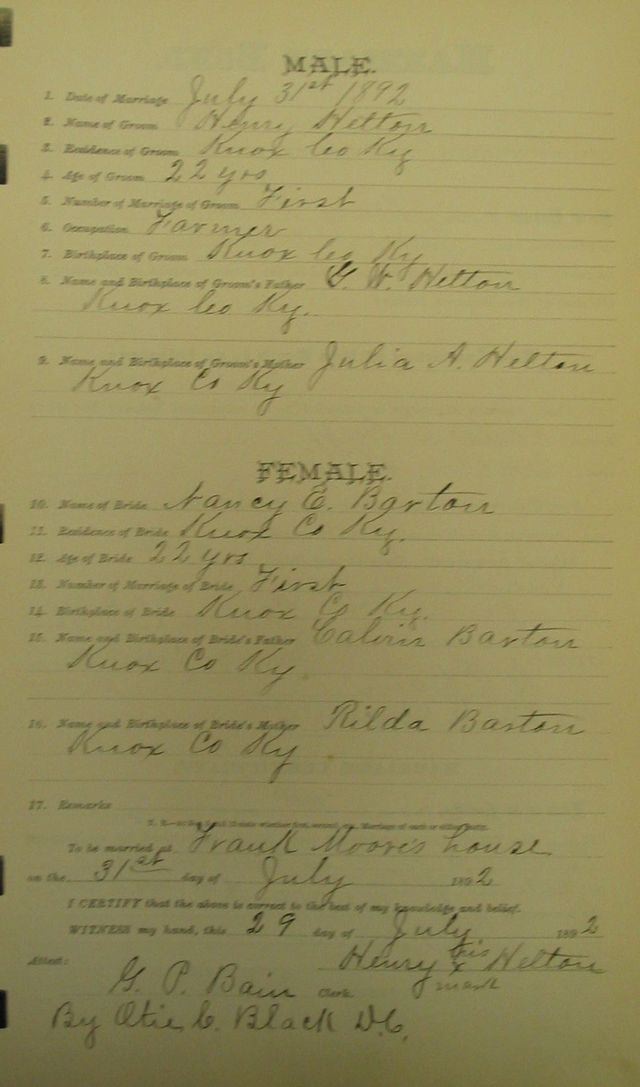 MALE.
1. Date of Marriage July 31st 1892
2. Name of Groom Henry Helton
3. Residence of Groom Knox Co Ky
4. Age of Groom 22 yrs
5. Number of Marriage of Groom First
6. Occupation Farmer
7. Birthplace of Groom Knox Co Ky
8. Name and Birthplace of Groom's Father G. W. Helton
Knox Co Ky.
9. Name and Birthplace of Groom's Mother Julia A. Helton
Knox Co Ky
FEMALE.
10. Name of Bride Nancy E. Barton
11. Residence of Bride Knox Co Ky.
12. Age of Bride 22 yrs
13. Number of Marriage of Bride First
14. Birthplace of Bride Knox Co Ky.
15. Name and Birthplace of Bride's Father Calvin Barton
Knox Co Ky
16. Name and Birthplace of Bride's Mother Rilda Barton
Knox Co Ky
17. Remarks
To be married at Frank Moore's house
on the 31st day of July 1892
I CERTIFY that the above is correct to the best of my knowledge and belief.
WITNESS my hand, this 29 day of July 1892
his
Attest: Henry x Helton
mark
G. P. Bain Clerk
By Otis C. Black D.C.